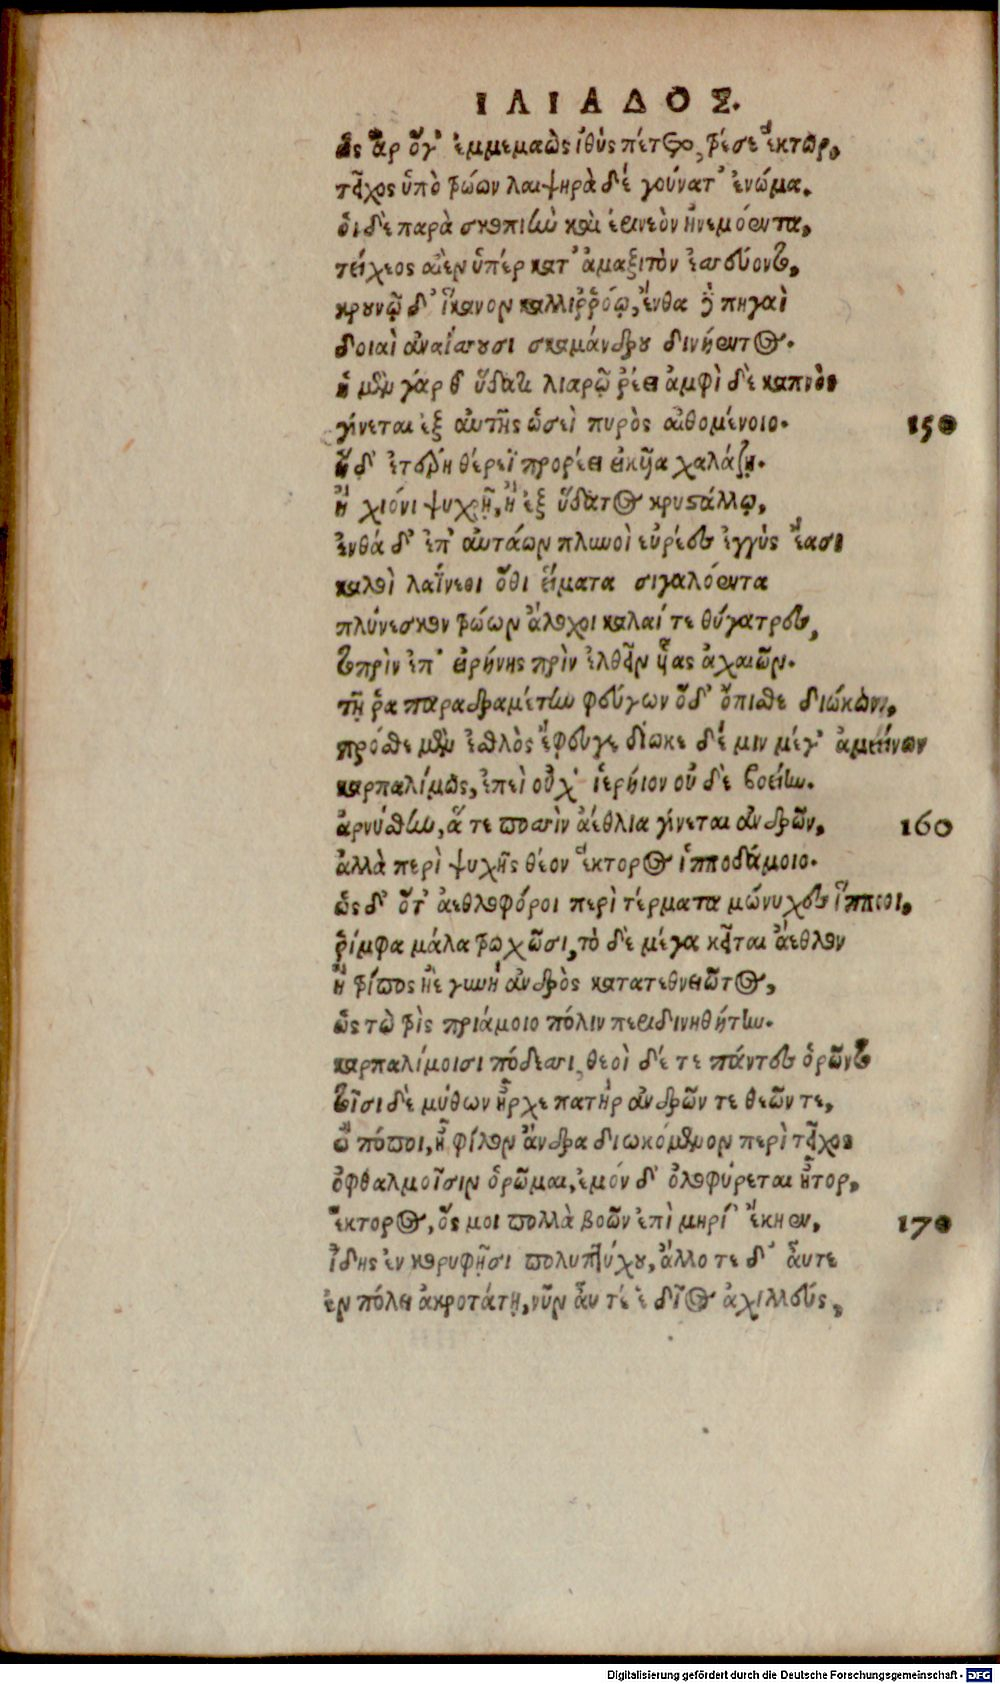 ΙΛΙΑΔΟΣ.
ὣς ἄρ ὅγ' ἐμμεμαὼς ἰθὺς πέτετο, τρέσε ἕκτωρ,
τεῖχος ὑπὸ τρώων λαιψηρὰ δέ γούνατ' ἐνώμα.
ὁι δὲ παρὰ σκοπιὴν καὶ ἐρινεὸν ἠνεμόεντα,
τείχεος αἰὲν ὑπέρ κατ' ἀμαξιτὸν ἐσσεύοντο,
κρουνῷ δ' ἵκανον καλλιῤῥόῳ, ἔνθα δὲ πηγαὶ
δοιαὶ ἀναΐσσουσι σκαμάνδρου δινήεντος.
ἡ μὲν γάρ θ ὕδατι λιαρῷ ῥέει ἀμφὶ δὲ καπνὸς
γίνεται ἐξ αὐτῆς ὡσεὶ πυρὸς αἰθομένοιο. 150
ἡ δ' ἑτέρη θέρεϊ προρέει εἰκῦια χαλάζῃ.
ἢ χιόνι ψυχρῇ, ἢ ἐξ ὕδατος κρυστάλλῳ,
ἐνθά δ' ἐπ' αὐτάων πλυνοὶ εὐρέες ἐγγὺς ἔασι
καλοὶ λαΐνεοι ὅθι εἵματα σιγαλόεντα
πλύνεσκον τρώων ἄλοχοι καλαί τε θύγατρες,
τοπρὶν ἐπ' εἰρήνης πρὶν ἐλθεῖν υἷας ἀχαιῶν.
τῇ ῥα παραδραμέτην φεύγων ὅδ' ὄπισθε διώκων,
πρόσθε μὲν ἐσθλὸς ἔφευγε δίωκε δέ μιν μέγ' ἀμείνων
καρπαλίμως, ἐπεὶ οὐχ' ἱερήιον οὐ δὲ βοείην.
ἀρνύσθην, ἅ τε ποσσὶν ἀέθλια γίνεται ἀνδρῶν, 160
ἀλλὰ περὶ ψυχῆς θέον ἕκτορος ἱπποδάμοιο.
ὡς δ' ὅτ' ἀεθλοφόροι περὶ τέρματα μώνυχες ἵπποι,
ῥίμφα μάλα τρωχῶσι, τὸ δὲ μέγα κεῖται ἄεθλον
ἢ τρίπος ἠὲ γυνὴ ἀνδρὸς κατατεθνειῶτος,
ὣς τὼ τρὶς πριάμοιο πόλιν περιδινηθήτην.
καρπαλίμοισι πόδεσσι, θεοὶ δέ τε πάντες ὁρῶντο
τοῖσι δὲ μύθων ἦρχε πατὴρ ἀνδρῶν τε θεῶν τε,
ὢ πόποι, ἦ φίλον ἄνδρα διωκόμενον περὶ τεῖχος
ὀφθαλμοῖσιν ὁρῶμαι, ἐμόν δ' ὀλοφύρεται ἦτορ,
ἕκτορος, ὅς μοι πολλὰ βοῶν ἐπὶ μηρί' ἔκηεν, 170
ἴδης ἐν κορυφῇσι πολυπτύχου, ἄλλο τε δ' αὖτε
ἐν πόλει ἀκροτάτῃ, νῦν αὖ τέ ἑ δῖος ἀχιλλεύς,
Digitalisierung gefördert durch die Deutsche Forschungsgemeinschaft - DFG